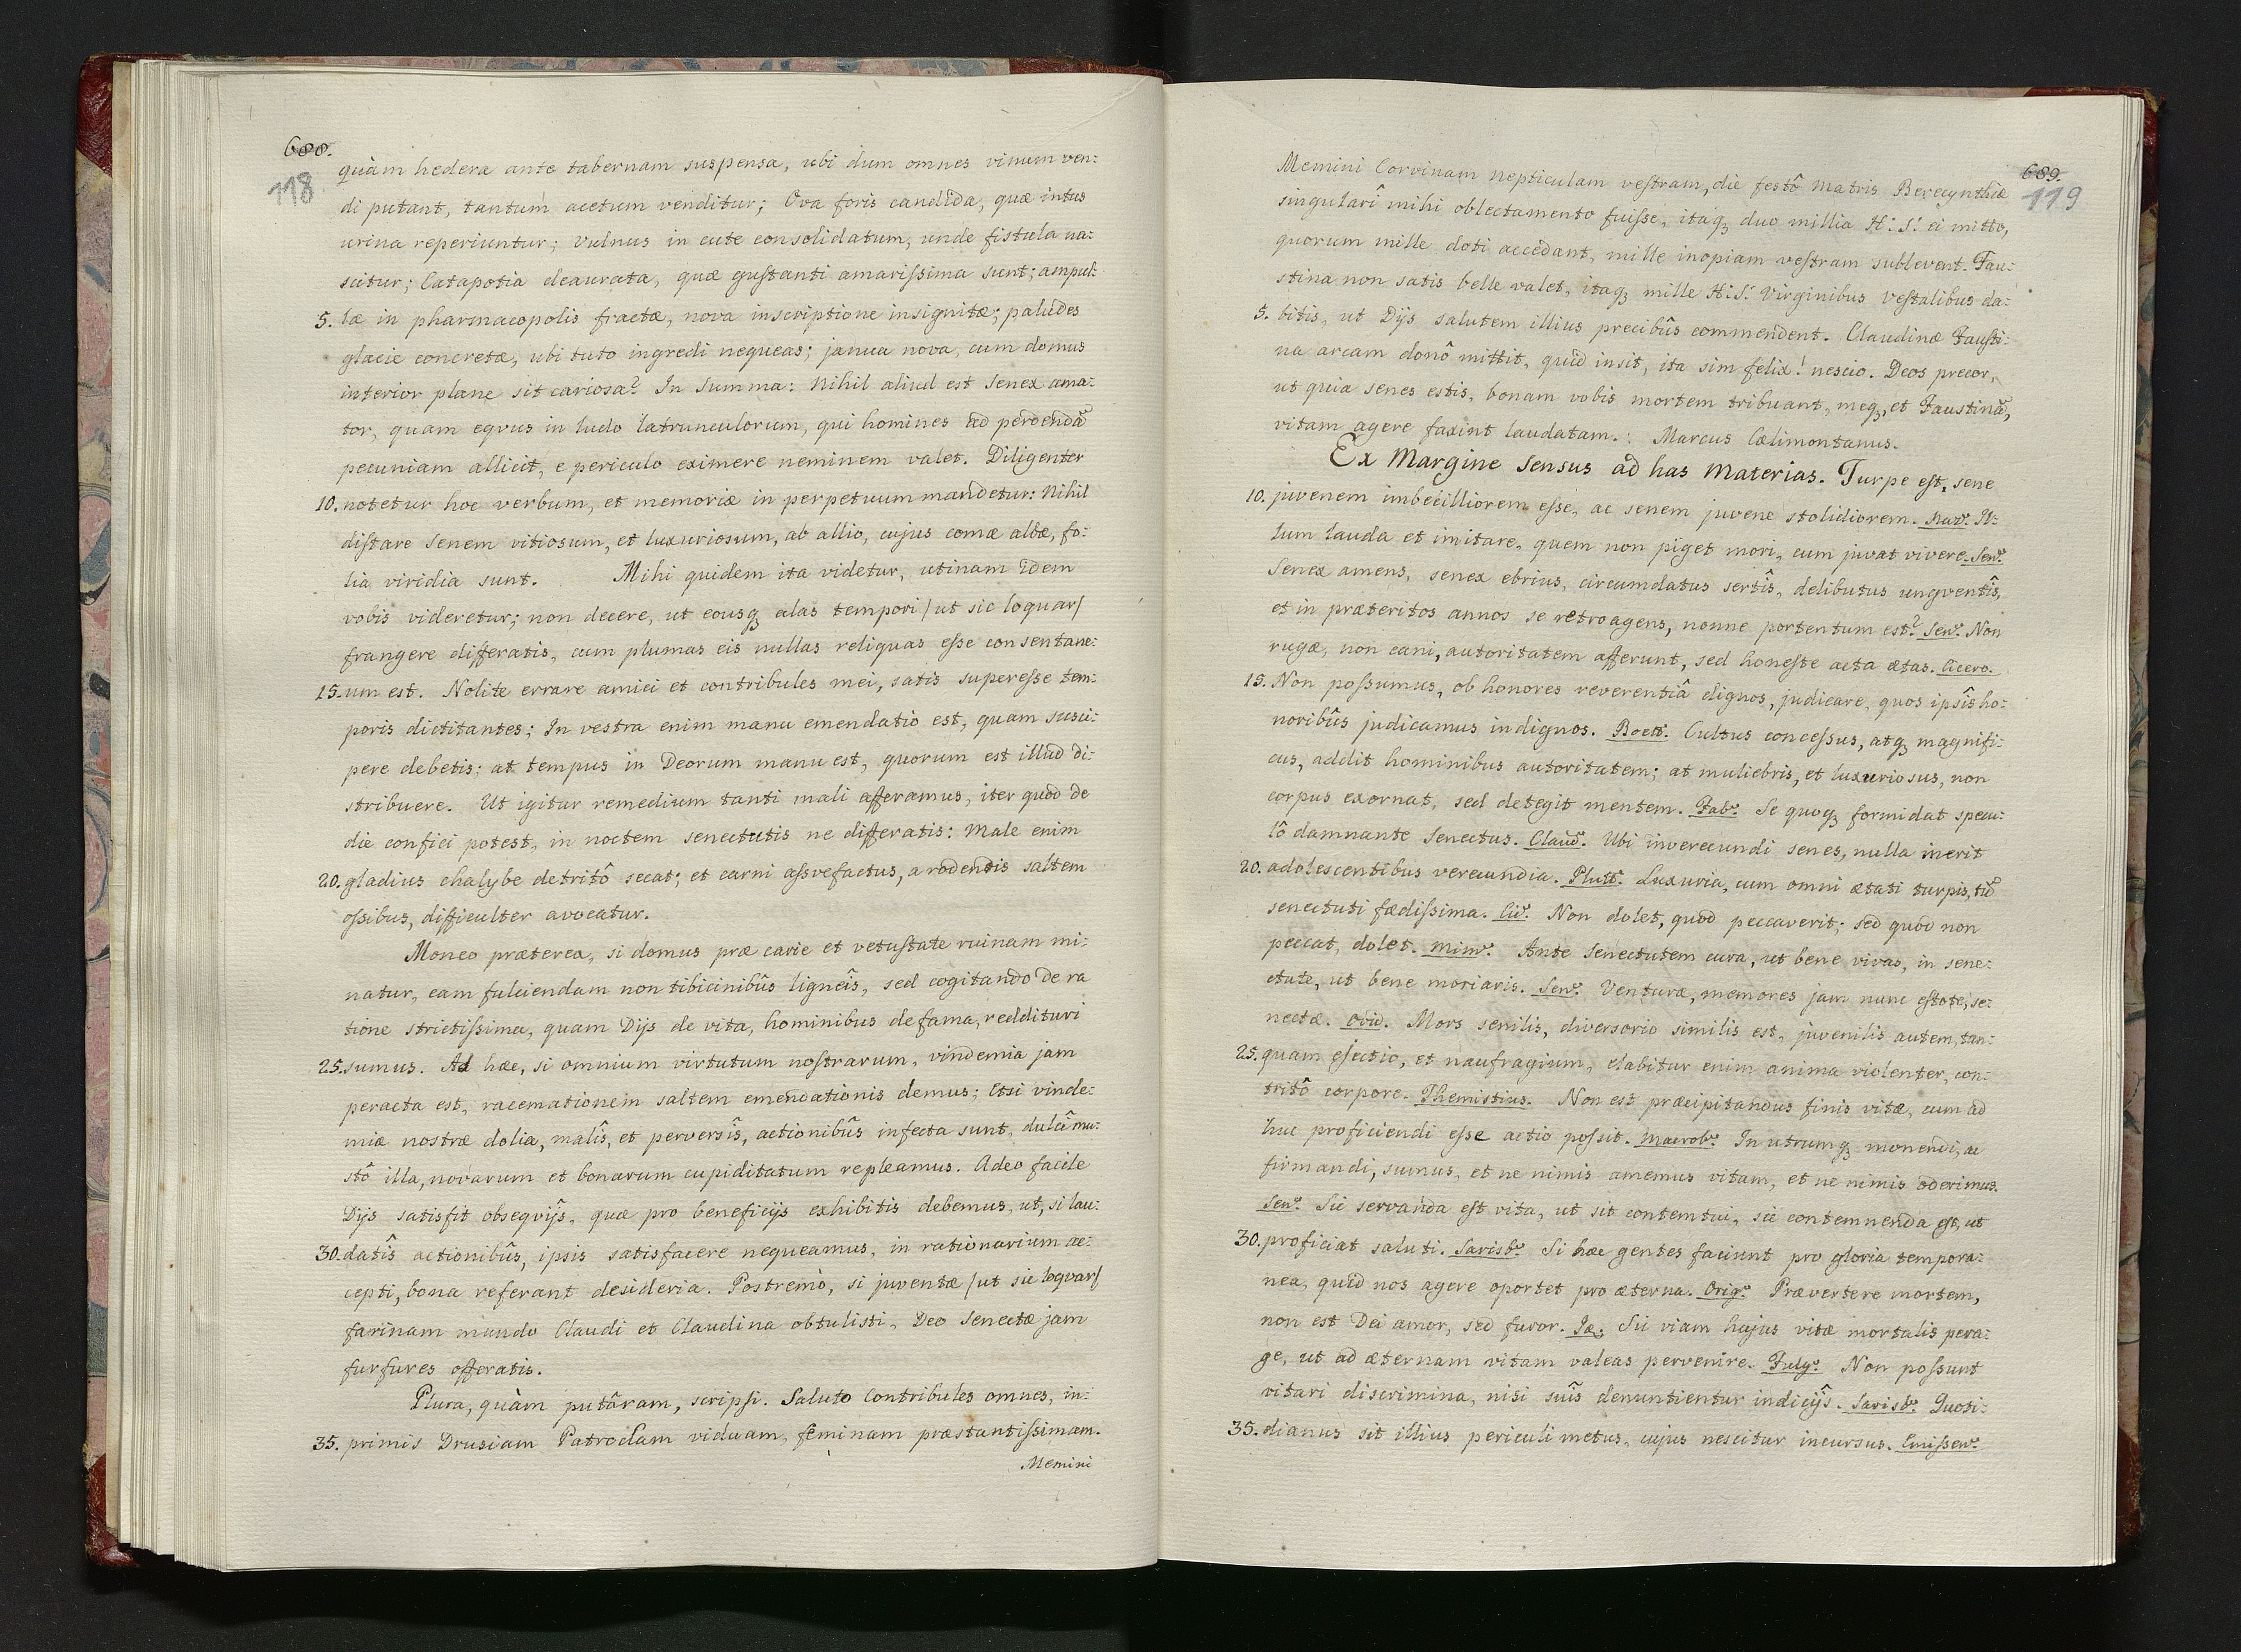 688.
118
quàm hedera ante tabernam suspensa, ubi dum omnes vinum ven:
di putant, tantum acetum venditur; Ova foris candida, quæ intus
urina reperiuntur; vulnus in cute consolidatum, unde fistula na:
scitur; Catapotia deaurata, quæ gustanti amarissima sunt; ampul:
5. læ in pharmacopolis fractæ, nova inscriptione insignitæ; paludes
glacie concretæ, ubi tuto ingredi nequeas; janua nova, cum domus
interior plane sit cariosa? In Summa: Nihil aliud est Senex ama:
tor, quam eqvus in ludo latrunculorum, qui homines ad perdendã
pecuniam allicit, e periculo eximere neminem valet. Diligenter
10. notetur hoc verbum, et memoriæ in perpetuum mandetur: Nihil
distare Senem vitiosum, et luxuriosum, ab allio, cujus comæ albæ, fo:
lia viridia sunt. Mihi quidem ita videtur, utinam idem
vobis videretur; non decere, ut eousq3 alas tempori /ut sic loquar/
frangere differatis, cum plumas eis nullas reliquas esse consentane:
15. um est. Nolite errare amici et contribules mei, satis superesse tem:
poris dictitantes; In vestra enim manu emendatio est, quam susci:
pere debetis; at tempus in Deorum manu est, quorum est illud di:
stribuere. Ut igitur remedium tanti mali afferamus, iter quod de
die confici potest, in noctem senectutis ne differatis: Male enim
20. gladius chalybe detritô secat; et carni assvefactus, a rodendis saltem
ossibus, difficulter avocatur.
Moneo præterea, si domus præ carie et vetustate ruinam mi:
natur, eam fulciendam non tibicinibûs ligneîs, sed cogitando de ra
tione strictissima, quam Dijs de vita, hominibus de fama, reddituri
25. sumus. Ad hæc, si omnium virtutum nostrarum, vindemia jam
peracta est, racemationem saltem emendationis demus; Etsi vinde:
miæ nostræ dolia, malîs, et perversîs, actionibûs infecta sunt, dulcî mu:
stô illa, novarum et bonarum cupiditatum repleamus. Adeo facile
Dijs satisfit obseqvijs, quæ pro beneficijs exhibitis debemus, ut, si lau:
30. datîs actionibûs, ipsis satisfacere nequeamus, in rationarium ac:
cepti, bona referant desideria. Postremò, si juventæ /ut sic loqvar/
farinam mundo Claudi et Claudina obtulisti, Deo Senectæ jam
furfures offeratis.
Plura, quàm putâram, scripsi. Saluto Contribules omnes, in:
35. primis Drusiam Patroclam viduam, feminam præstantissimam.
Memini
689.
119
Memini Corvinam Nepticulam vestram, die festô Matris Berecynthiæ
singularî mihi oblectamento fuisse, itaq3 duo millia H: S: ei mitto,
quorum mille doti accedant, mille inopiam vestram sublevent. Fau:
stina non satis belle valet, itaq3 mille H: S: Virginibus vestalibus da:
5. bitis, ut Dijs salutem illius precibûs commendent. Claudinæ Fausti:
na arcam donô mittit, quid insit, ita sim felix! nescio. Deos precor,
ut quia senes estis, bonam vobis mortem tribuant, meq3, et Faustinã,
vitam agere faxint laudatam. : Marcus Cælimontanus.
Ex Margine Sensus ad has Materias. Turpe est, sene
10. juvenem imbecilliorem esse, ac senem juvene stolidiorem. Nav: Il:
lum lauda et imitare, quem non piget mori, cum juvat vivere. Sen:
Senex amens, senex ebrius, circumdatus sertîs, delibutus ungventîs,
et in præteritos annos se retroagens, nonne portentum est? Sen: Non
rugæ, non cani, autoritatem afferunt, sed honeste acta ætas. Cicero.
15. Non possumus, ob honores reverentiâ dignos, judicare, quos ipsîs ho:
noribûs judicamus indignos. Boet: Cultus concessus, atq3 magnifi:
cus, addit hominibus autoritatem; at muliebris, et luxuriosus, non
corpus exornat, sed detegit mentem. Fab: Se quoq3 formidat specu:
lô damnante Senectus. Claud: Ubi inverecundi senes, nulla inerit
20. adolescentibus verecundia. Plut: Luxuria, cum omni ætati turpis, tũ
senectuti fœdissima. Cic: Non dolet, quod peccaverit; sed quod non
peccat, dolet. Mim: Ante Senectutem cura, ut bene vivas, in sene:
ctute, ut bene moriaris. Sen: Venturæ, memores jam nunc estote, se:
nectæ. Ovid. Mors senilis, diversorio similis est, juvenilis autem, tan:
25. quam ejectio, et naufragium, elabitur enim anima violenter, con:
tritô corpore. Themistius. Non est præcipitandus finis vitæ, cum ad
huc proficiendi esse actio possit. Macrob: In utrumq3 monendi, ac
firmandi, sumus, et ne nimis amemus vitam, et ne nimis oderimus.
Sen: Sic servanda est vita, ut sit contemtui, sic contemnenda est, ut
30. proficiat saluti. Sarisb: Si hæc gentes faciunt pro gloria tempora:
nea, quid nos agere oportet pro æterna. Orig: Prævertere mortem,
non est Dei amor, sed furor. Sic viam hujus vitæ mortalis pera:
ge, ut ad æternam vitam valeas pervenire. Fulg: Non possunt
vitari discrimina, nisi suîs denuntientur indicijs. Sarisb: Quoti:
35. dianus sit illius periculi metus, cujus nescitur incursus. Emissen: